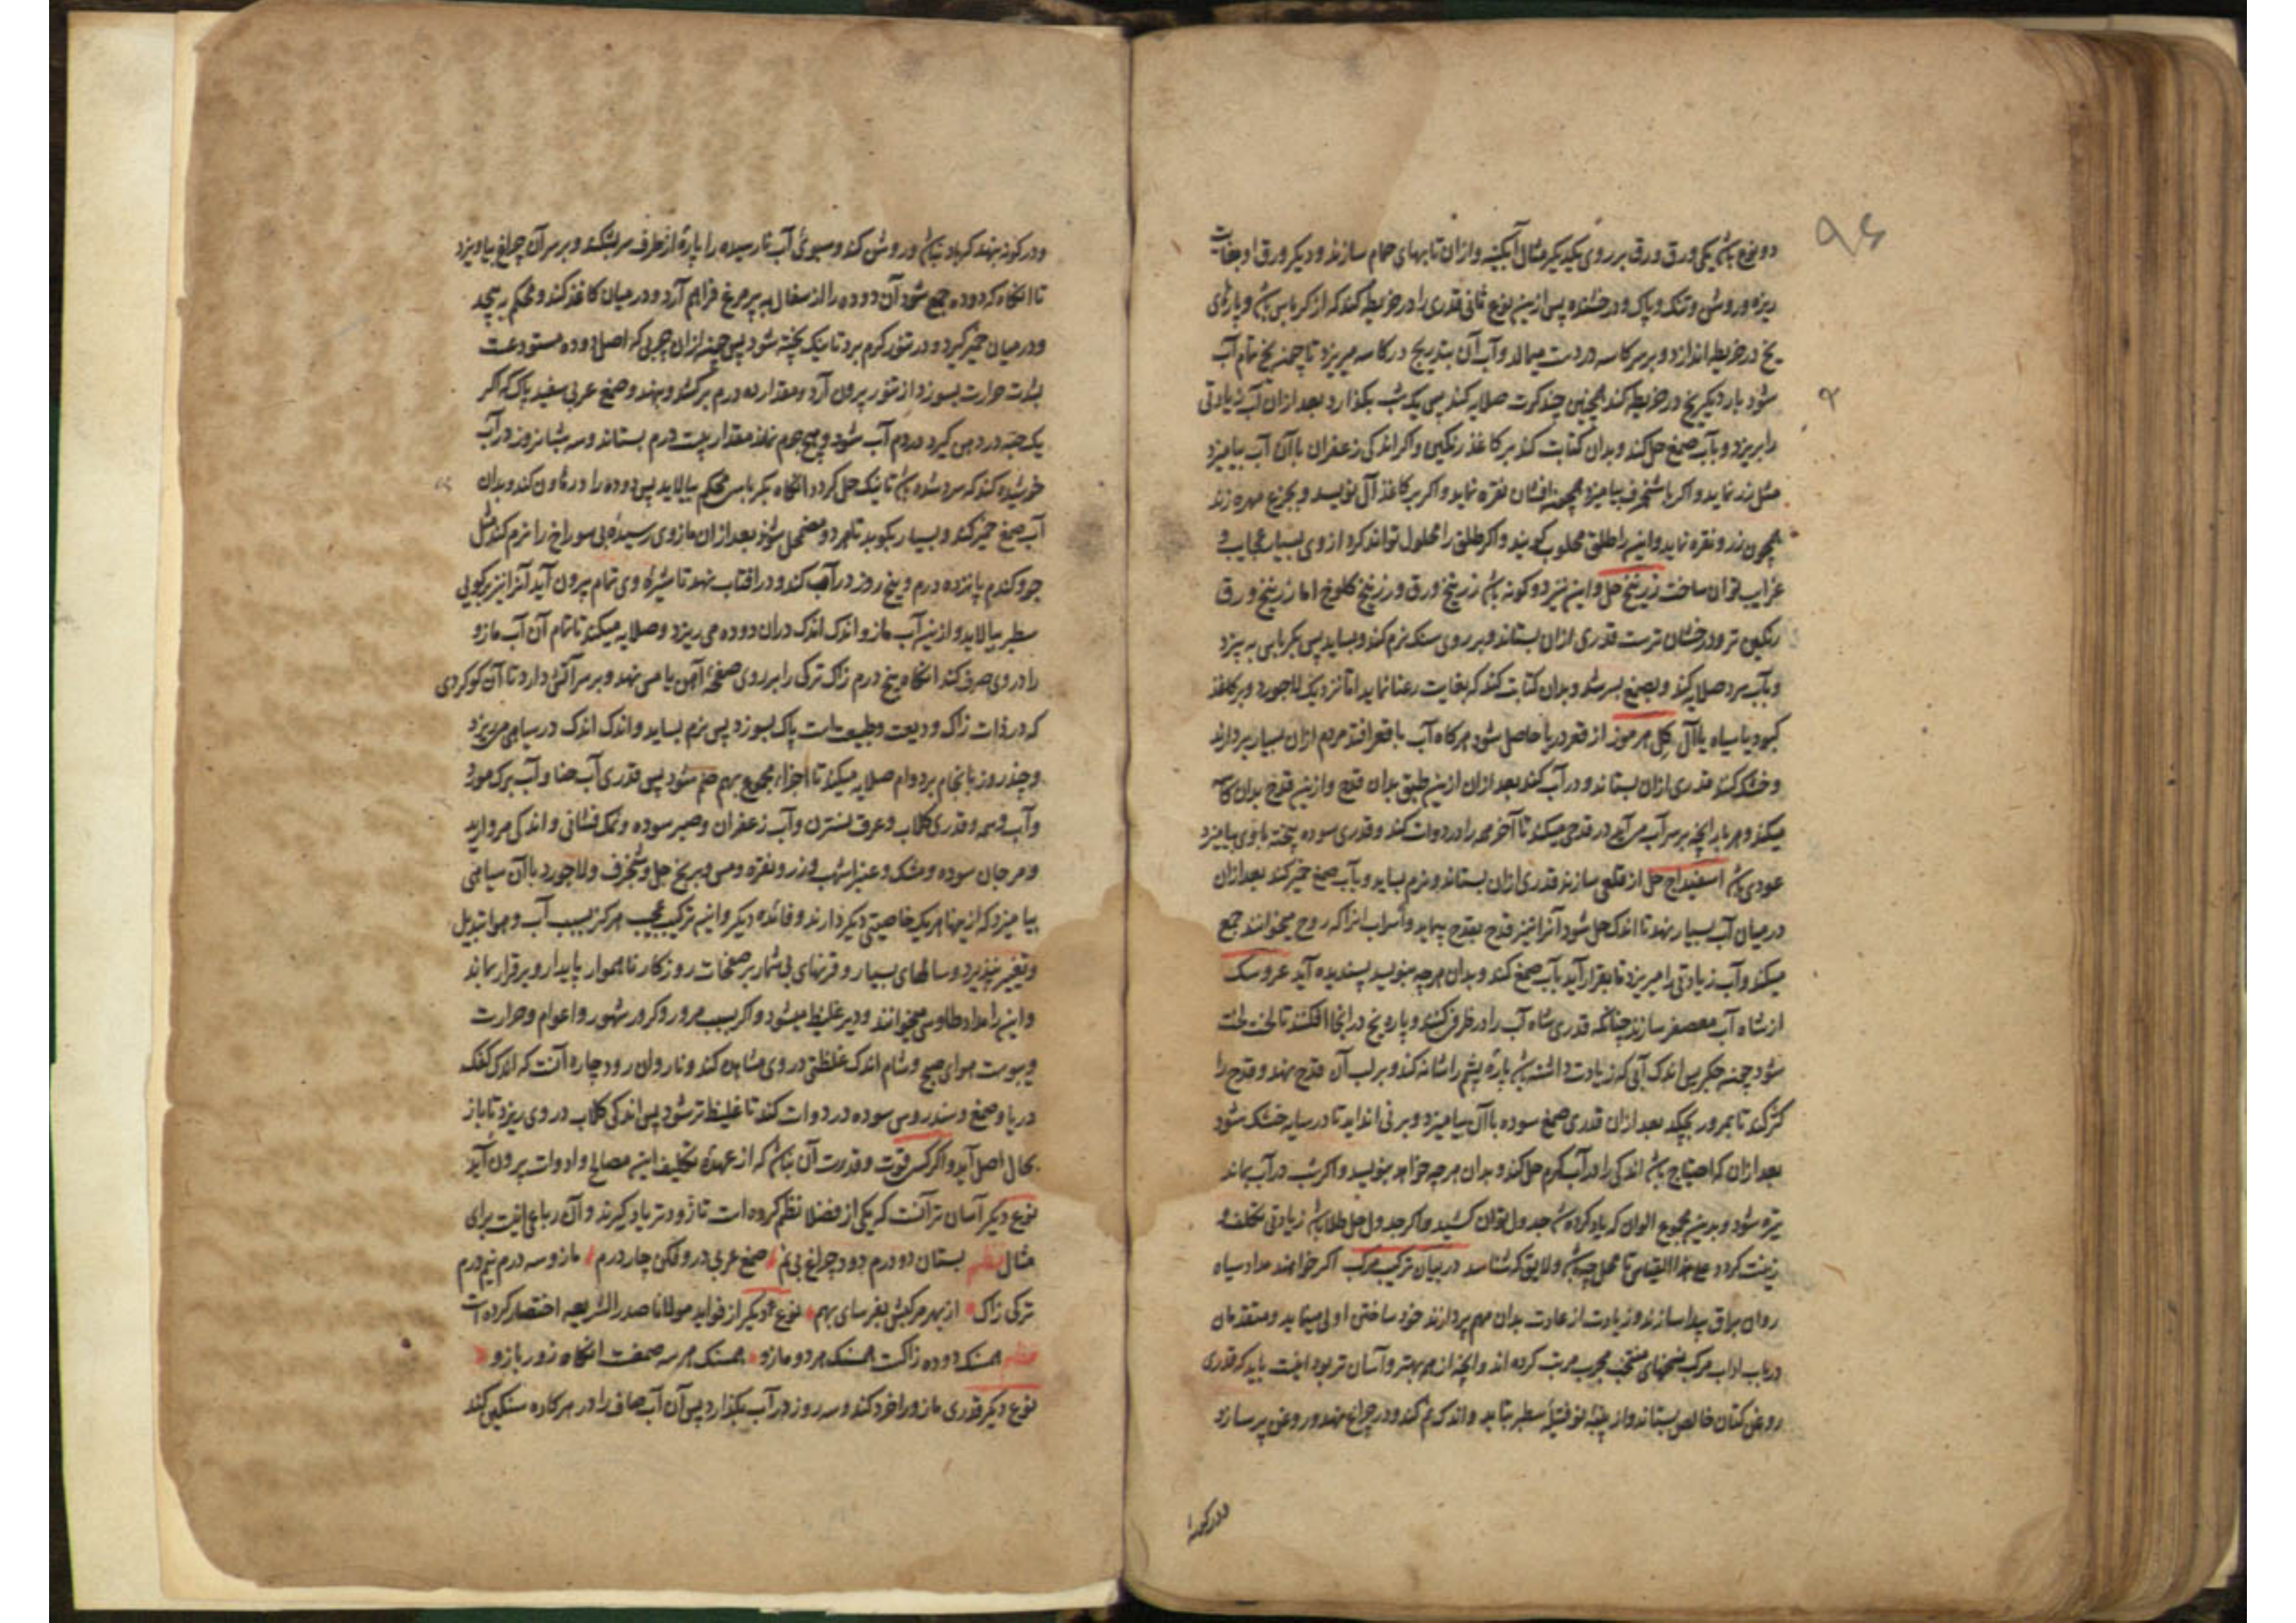 ۹۶
دو نوع باشد یکی ورق ورق بر روی یکدیگر مثال آبگینه و ازان تابهای حمام سازند و دیگر ورق او بغایت
ریزه و روشن و تنک و پاک و درخشنده پس ازین نوع ثانی قدری را در خریطه کند که از کرباس باشد و پارهای
یخ در خریطه اندازد و بر سر کاسه در دست میمالد و آب آن بتدریج در کاسه میریزد تا چون یخ تمام آب
شود بار دیگر یخ در خریطه کند همچنین چند کرت صلایه کند پس یک شب بگذارد بعد ازان آب زیادتی
را بریزد و بآب صمغ حل کند و بدان کتابت کند بر کاغذ رنگین و اگر اندکی زعفران باآن آب بیامیزد
مثل زر نماید و اگر باشنجرف بیامیزد همچو افشان نقره نماید و اگر بر کاغذ آل نویسد و بجزع مهره زند
همچون زر و نقره نماید و این را طلق محلوب گویند و اگر طلق را محلول تواند کرد از وی بسیار عجایب و
غرایب توان ساخت زرنیخ حل و این نیز دو گونه باشد زرنیخ ورق و زرنیخ کلوخ اما زرنیخ ورق
رنگین تر و درخشان ترست قدری ازان بستاند و بر روی سنگ نرم کند و بساید پس بکرباس به بیزد
و بآب سرد صلایه کند و بصمغ بسرشد و بدان کتابت کند که بغایت رعنا نماید اما نزدیک لاجورد و بر کاغذ
کبود یا سیاه یا آل گل هرموز از قعر دریا حاصل شود هرگاه آب با قعر افتد مردم ازان بسیار بردارند
و خشک کنند قدری ازان بستاند و در آب کند بعد ازان ازین طبق بدان قدح و ازین قدح بدان کاسه
میکند و هر بار آنچه بر سر آب می آید در قدحی میکند تا آخر همه را در دوات کند و قدری سوده پخته باوی بیامیزد
عودی باشد اسفیداج حل از قلعی سازند قدری ازان بستاند و نرم بساید و بآب صمغ خمیر کند بعد ازان
در میان آب بسیار نهد تا اندک حل شود آنرا نیز قدح بقدح پیماید و آنسراب انرا که روح میخوانند جمع
میکند و آب زیادتی را میریزد تا بقرار آید بآب صمغ کند و بدان هرچه بنویسد پسندیده آید عروسک
از شاه آب معصفر سازند چنانکه قدری شاه آب را در ظرف کنند و پاره یخ در انجا افکنند تا لخت لخت
شود چون جگر پس اندک آبی که زیادت داشته باشد پارهٔ پشم را شانه کند و بر لب آن قدح نهد و قدح را
کژ کند تا بمرور بچکد بعد ازان قدری صمغ سوده باآن بیامیزد و بر نی انداید تا در سایه خشک شود
بعد ازان که احتیاج باشد اندکی را در آب گرم حل کند و بدان هرچه خواهد بنویسد و اگر شب در آب بماند
تیره شود و بدین مجموع الوان که یاد کرده شد جدول توان کشید و اگر جدول حل طلا باشد زیادتی تکلف و
زینت گردد علی هذا القیاس تا محل چه باشد و لایق که شناسد در بیان ترکیب مرکب اگر خواهند مداد سیاه
روان براق پیدا سازند و زیادت از عادت بدان مهم پردازند خود ساختن اولی مینماید و متقدمان
در باب اداب مرکب نسخهای منتخب مجرب مرتب کرده اند و آنچه از همه بهتر و آسان تر بود اینست باید که قدری
روغن کتان خالص بستاند و از پنبه نو فتیله سطبر بتابد و اندک نم کند و در چراغ نهد و روغن پر سازد
در گونه
و در گونه نهد که باد نباشد و روشن کند و سبوی آب نارسیده را پارهٔ از طرف سر بشکند و بر سر آن چراغ بیاویزد
تا آنگاه که دوده جمع شود آن دوده را از سفال به پر مرغ فراهم آرد و در میان کاغذ کند و محکم به پیچد
و در میان خمیر گیرد و در تنور گرم برد تا نیک پخته شود پس چون ازان چربی که اصل دوده مستودعست
بشدت حرارت بسوزد از تنور برون آرد و مقدار ده درم برکشد و بنهد و صمغ عربی سفید پاک که اگر
یک حبه در دهن گیرد در دم آب شود و هیچ جرم نماند مقدار بیست درم بستاند و سه شبانروز در آب
خوشیده کند که سرد شده باشد تا نیک حل گردد آنگاه بکرباس محکم بپالاید پس دوده را در هاون کند و بدان
آب صمغ خمیر کند و بسیار بکوبد تا هر دو مضمحل شوند بعد ازان مازوی رسیده بی سوراخ را نرم کند مثل
جو و گندم پانزده درم و پنج روز در آب کند و در افتاب نهد تا شیره وی تمام برون آید آنرا نیز بکوبی
سطبر بپالاید و ازین آب مازو اندک اندک دران دوده می ریزد و صلایه میکند تا تمام آن آب مازو
را در وی صرف کند انگاه پنج درم زاک ترکی را بر روی صفحهٔ آهن یا مس نهد و بر سر آتش دارد تا آن گوگردی
که در ذات زاک ودیعت و طبیعت است پاک بسوزد پس نرم بساید و اندک اندک در سیاهی میریزد
و چند روز بانجام بر دوام صلایه میکند تا اجزاء مجموع بهم ضم شود پس قدری آب حنا و آب برک مورد
و آب وسمه و قدری گلاب و عرق نسترن و آب زعفران و صبر سوده و نمک فشانی و اندکی مروارید
و مرجان سوده و مشک و عنبر اشهب و زر و نقره و مس و برنج حل و شنجرف و لاجورد باآن سیاهی
بیامیزد که ازینها هریک خاصیتی دیگر دارند و فائده دیگر و این ترکیب عجیب هرگز بسبب آب و هوا تبدیل
و تغییر نپذیرد و سالهای بسیار و قرنهای بی شمار بر صفحات روزگار ناهموار پایدار و برقرار بماند
و این را مداد طاوسی میخوانند و دیر غلیظ میشود و اگر بسبب مرور و کرور شهور و اعوام و حرارت
و یبوست هوای صبح و شام اندک غلظتی در وی مشاهده کند و نا روان رود چاره آنست که اندک کفک
دریا و صمغ و سندروس سوده در دوات کند تا غلیظ تر شود پس اندکی گلاب در وی ریزد تا باز
بحال اصل آید و اگر کس قوت و قدرت آن نباشد که از عهده تکلیف این مصالح و ادوات برون آید
نوع دیگر آسان تر آنست که یکی از فضلا نظم کرده است تا زودتر یاد گیرند و آن رباعی اینست برای
مثال نظم بستان دو درم دود چراغ بی نم صمغ عربی درو فکن چار درم مازو سه درم نیم درم
ترکی زاک از بهر مرکبش بغرسای بهم نوع دیگر از فواید مولانا صدر الشریعه اختصار کرده است
نظم همسنگ دوده زاکست همسنک هر دو مازو همسنک هر سه صمغست انگاه زور بازو
نوع دیگر قدری مازو را خرد کند و سه روز در آب بگذارد پس آن آب صاف را در هر کاره سنگین کند